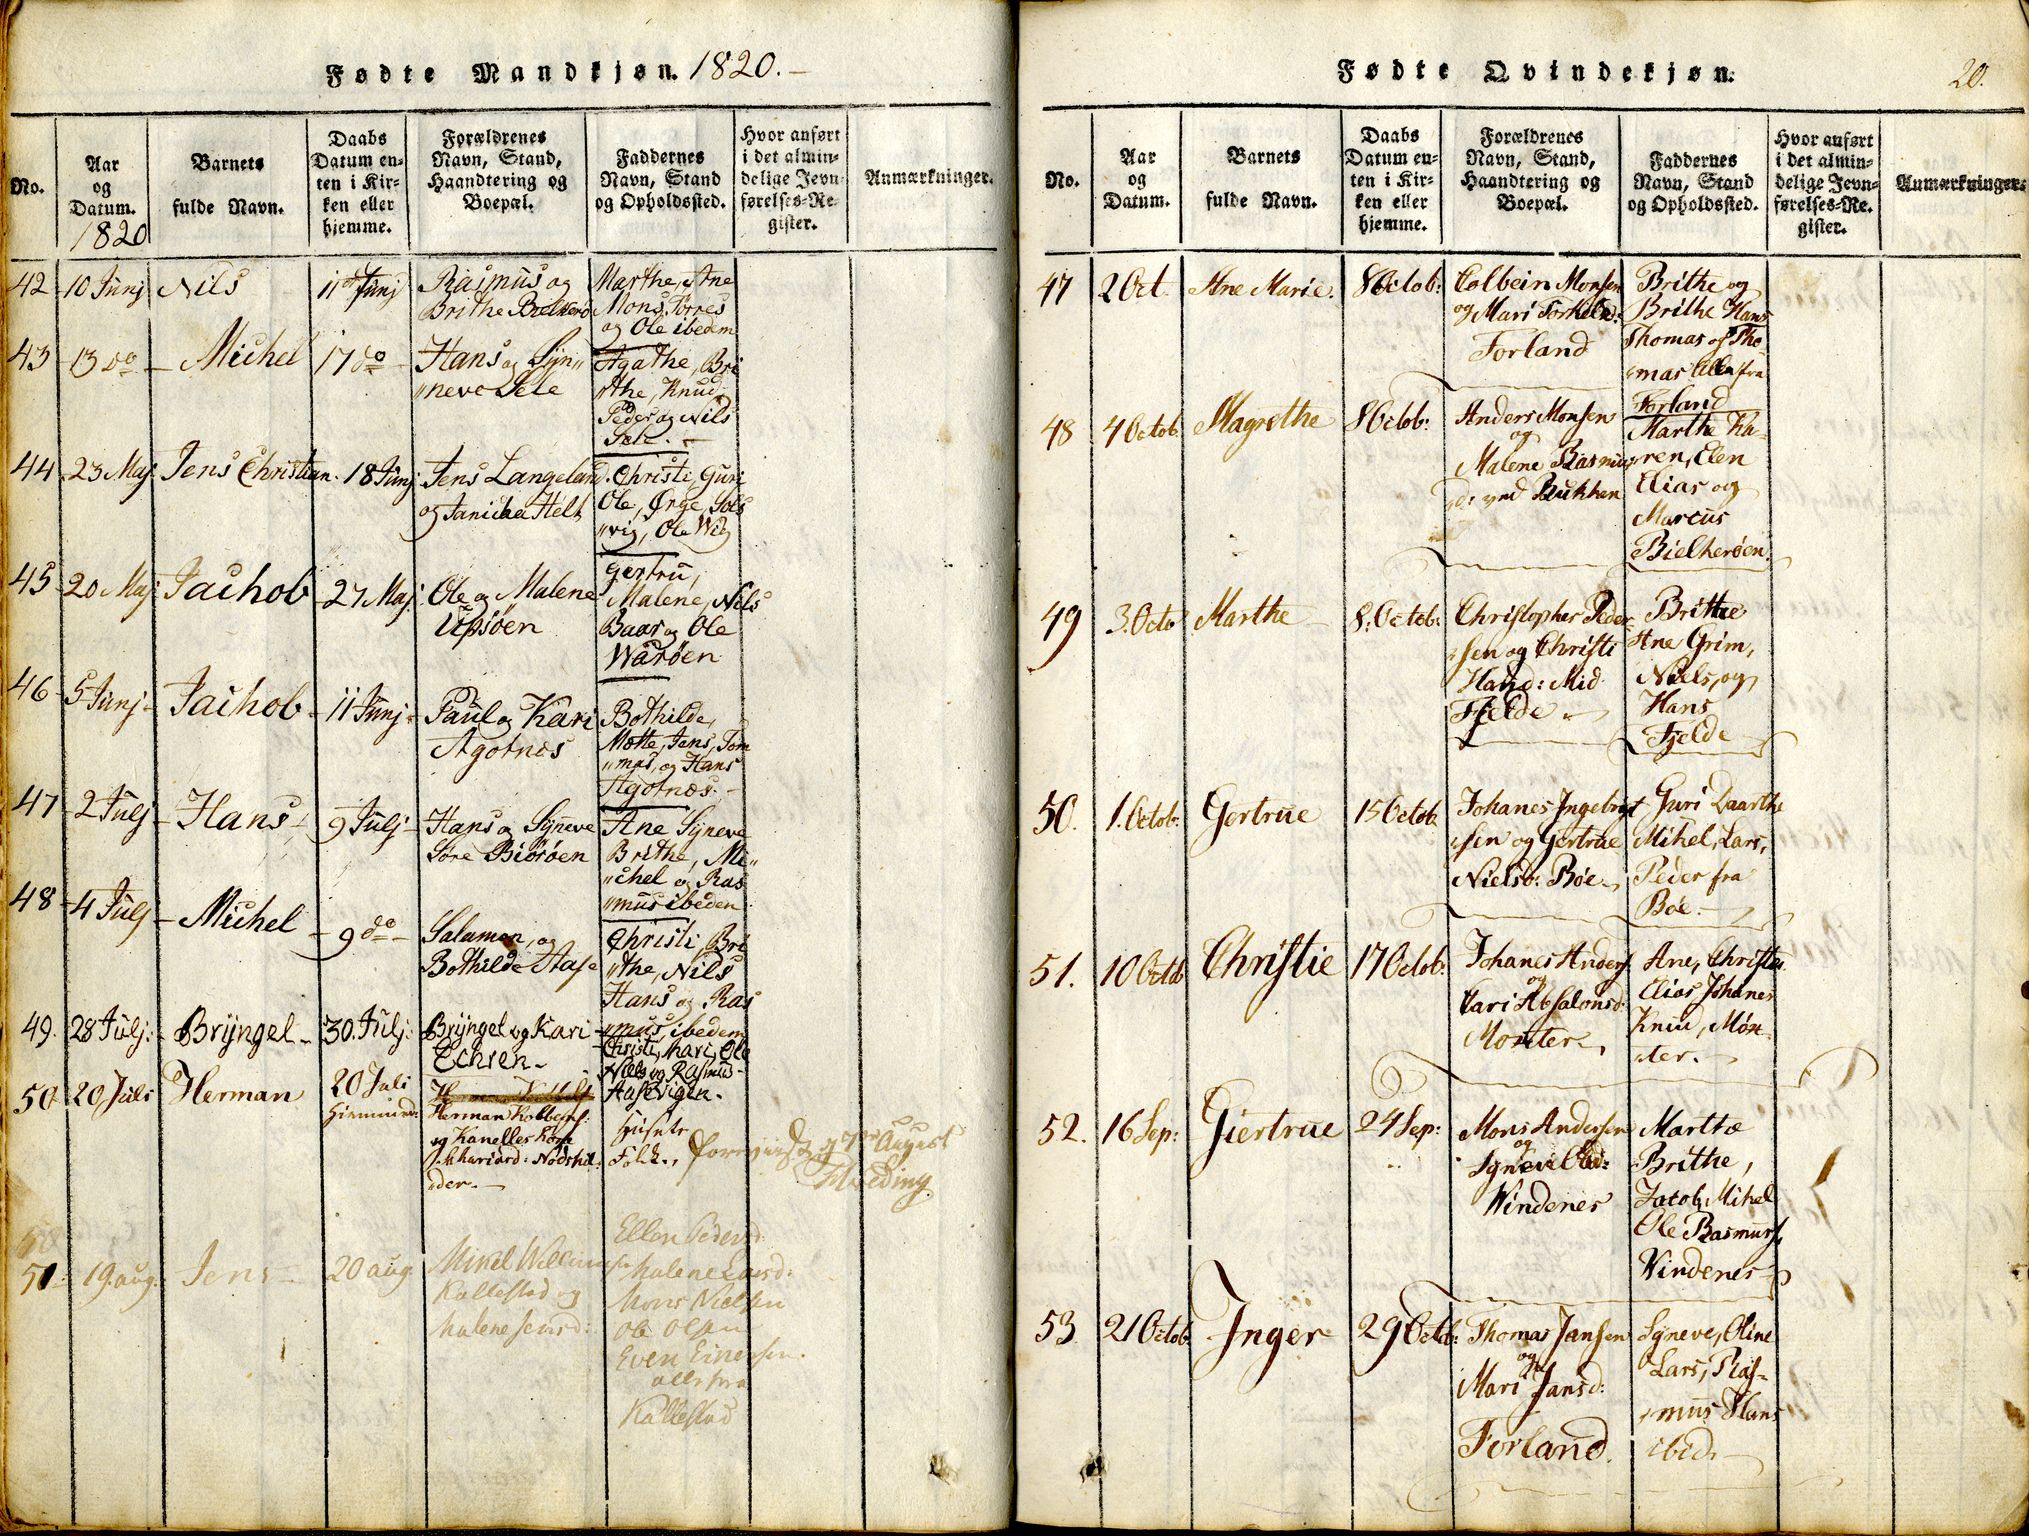 Fødte Mandkjøn. 1820.
No.
Aar og Datum. 1820
Barnets fulde Navn.
Daabs Datum enten i Kirken eller hjemme.
Forældrenes Navn, Stand, Haandtering og Boepæl.
Faddernes Navn, Stand og Opholdssted.
Hvor anført i det almindelige Jevnførelses-Register.
Anmærkninger.
42 10 Junj Nils 11 Junj
Rasmus og
Brithe Bielkerö
Marthe, Ane
Mons, Torres
og Ole ibedm
43 13 do Michel 17 do
Hans og Sÿn„
„neve Sele
Agathe, Bri
„the, Knud
Peder og Nils
Sele.
44 23 Maj: Jens Christian. 18 Junj
Jens Langeland
og Janicha Helt
Christi, Guri
Ole, Ørge, Sols
„vig, Ole Wig
45 20 Maj: Jachob 27 Maj:
Ole og Malene
Upsöen
Gertru,
Malene, Nils
Baar og Ole
Waröen
46 5 Junj Jachob 11 Junj
Paul og Kari
Agotnes
Bothilde,
Mette, Jens, Tom
„mas, og Hans
Agotnes.
47 2 Julj Hans 9 Julj
Hans og Sÿneve
Sore Biöröen
Ane Sÿneve
Brithe, Mi„
„chel og Ras
„mus ibeden
48 4 Julj Michel 9 do
Salamon, og
Bothilde Aase
Christi, Bri
„the, Nils
Hans og Ras
„mus, ibedem
49. 28 Julj: Brÿngel 30 Julj:
Brÿngel og Kari
Echren
Christi, Mari, Ole
Niels og Rasmus
Aasevigen.
50 20 Juli Herman 20 Juli
Herman Kolbens:
Huusets
Folk.
August
51. 19 aug. Jens 20 aug
Mikel Willums
Kallestad og
Malene Jensd:
Ellen Pedersd:
Malene Larsd:
Mons Nielsen
Ole Olsen
Even Einersen.
alle fra
Kallestad
Fødte Qvindekjøn.
20.
No.
Aar og Datum.
Barnets fulde Navn.
Daabs Datum enten i Kirken eller hjemme.
Forældrenes Navn, Stand, Haandtering og Boepæl.
Faddernes Navn, Stand og Opholdssted.
Hvor anført i det almindelige Jevnførelses-Register.
Anmærkninger.
47 2 Oct Ane Marie. 8 Octob:
Colbein Monsen
og Mari Torkelsd:
Forland
Brithe og
Brithe Hans
Thomas og Tho
„mas alle fra
Forland
48 4 Octob Magrethe 8 Octob:
Anders Monsen
og
Malene Rasmus
d: ved Bukken
Marthe Ka
ren, Elen
Elias og
Marcus
Bielkeröen.
49 3. Octo Marthe 8: Octob:
Christopher Peder
„sen og Christi
Hansd: Mid
Fjelde
Brithe
Ane Grim,
Niels, og
Hans
Fjelde
50. 1. Octob: Gertrue 15 Octob
Johanes Ingebrigt
„sen og Gertrue
Nielsd: Böe
Guri Daarthe
Mikel, Lars,
Peder fra
Böe.
51. 10 Octob Christie 17 Octob:
Johanes Anders
og
Kari Absalonsd:
Monster
Ane, Christie
Elias Johanes
Knud, Møn
ster.
52. 16 Sep: Giertrue 24 Sep:
Mons Andersen
og
Sÿnneve
Windenes
Marthe
Brithe,
Jacob, Mikel
Ole Rasmus,
Vindenes
53 21 Octob Inger 29 Octob:
Thomas Jansen
og
Mari Jansd:
Forland.
Sÿneve, Oline
Lars, Ras-
„mus Hans
ibid